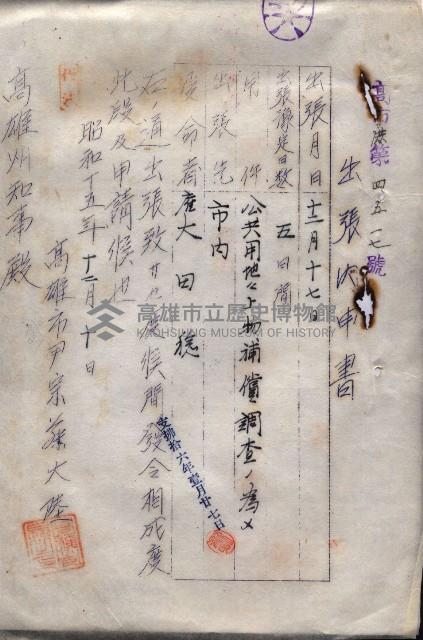 高市港第四五一七號
出張伺申書
出張月日 十二月十七日
出張豫定日數 五日間
用件 公共用地々上物補償調査ノ為メ
出張先 市内
受命者 産 大田 稔
右ノ通出張致サセ度候間發令相成度
此段及申請候也
昭和十五年十二月十日
高雄市尹宗藤大陸
高雄州知事殿
拾六年壹月廿七日
高雄市立歷史博物館
KAOHSIUNG MUSEUM OF HISTORY